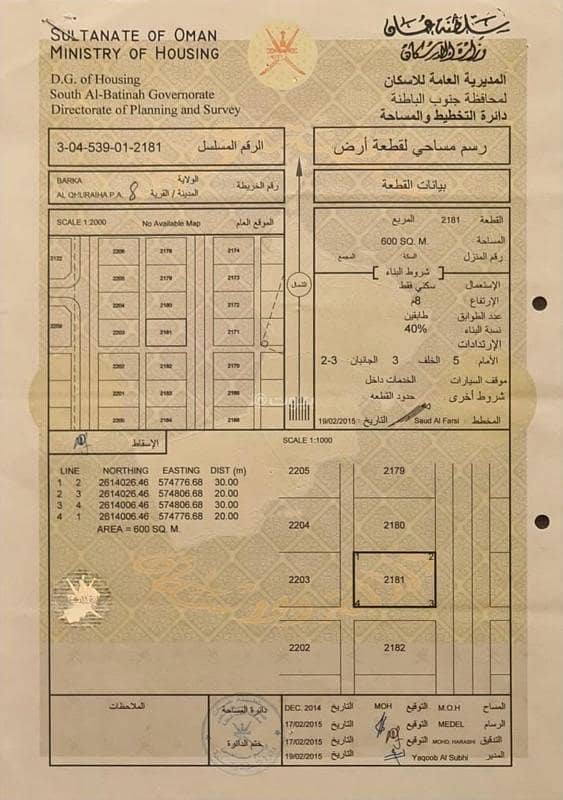 SULTANATE OF OMAN
MINISTRY OF HOUSING
سلطنة عمان
وزارة الإسكان
D.G. of Housing
South Al-Batinah Governorate
Directorate of Planning and Survey
المديرية العامة للاسكان
لمحافظة جنوب الباطنة
دائرة التخطيط والمساحة
3-04-539-01-2181 الرقم المسلسل
رسم مساحي لقطعة أرض
BARKA الولاية
AL QHURAIHA P.A. 8 المدينة / القرية
رقم الخريطة
بيانات القطعة
SCALE 1:2000 No Available Map الموقع العام
2122 2206 2178 2174
2205 2179 2173
2204 2180 2172
2259 2203 2181 2171
2202 2182 2170
2201 2183 2169
2200 2184 2168
الشمال
القطعة 2181 المربع
المساحة 600 SQ. M.
رقم المنزل السكة المجمع
شروط البناء
الإستعمال سكني فقط
الإرتفاع 8م
عدد الطوابق طابقين
نسبة البناء 40%
الإرتدادات
الأمام 5 الخلف 3 الجانبان 2-3
موقف السيارات الخدمات داخل
شروط أخرى حدود القطعه
المخطط Saud Al Farsi التاريخ 19/02/2015
الإسقاط
SCALE 1:1000
LINE NORTHING EASTING DIST (m)
1 2 2614026.46 574776.68 30.00
2 3 2614026.46 574806.68 20.00
3 4 2614006.46 574806.68 30.00
4 1 2614006.46 574776.68 20.00
AREA = 600 SQ. M.
2205 2179
2204 2180
1 2
2203 2181
4 3
2202 2182
الملاحظات
دائرة المساحة
ختم الدائرة
المساح M.O.H التوقيع MOH التاريخ DEC. 2014
الرسام MEDEL التوقيع التاريخ 17/02/2015
التدقيق MOHD. HARASHI التوقيع التاريخ 17/02/2015
المدير Yaqoob Al Subhi التاريخ 19/02/2015